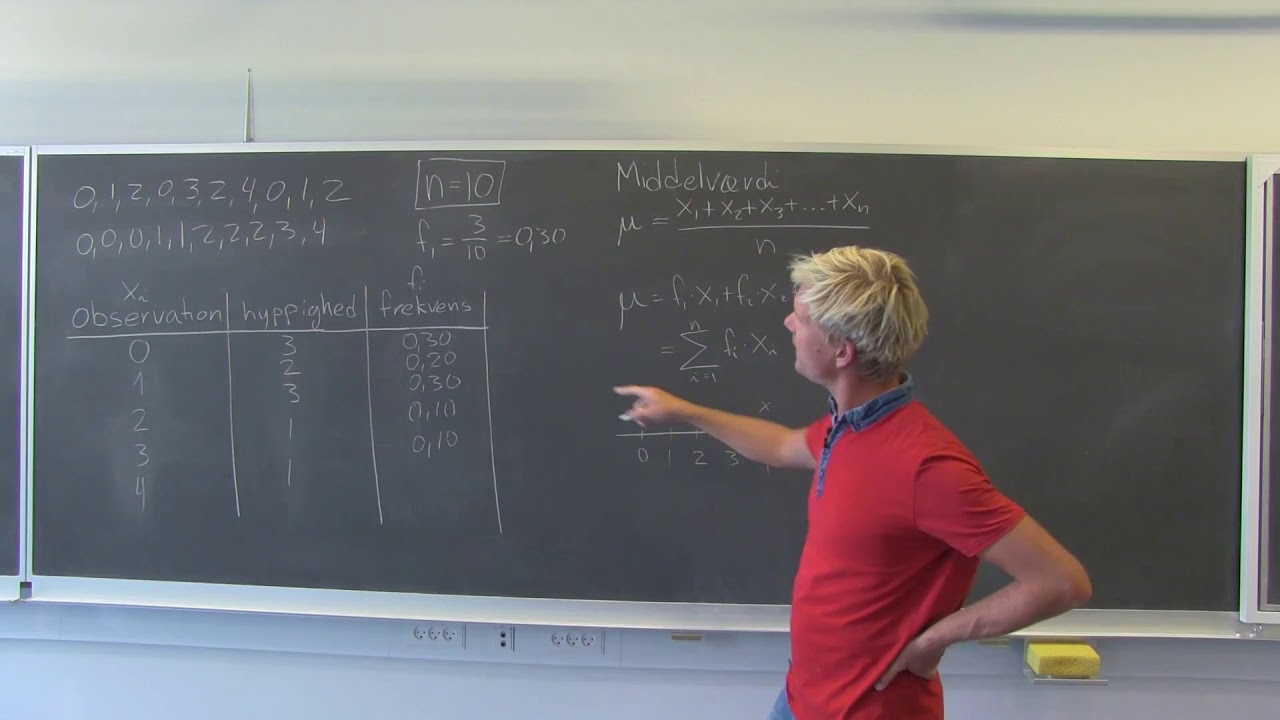 0,1,2,0,3,2,4,0,1,2
0,0,0,1,1,2,2,2,3,4
n=10
f₁ = 3/10 = 0,30
xᵢ fᵢ
Observation hyppighed frekvens
0 3 0,30
1 2 0,20
2 3 0,30
3 1 0,10
4 1 0,10
Middelværdi
μ = (x₁+x₂+x₃+...+xₙ)/n
μ = f₁·x₁+f₂·x₂
= Σⁿᵢ₌₁ fᵢ·xᵢ
x
0 1 2 3